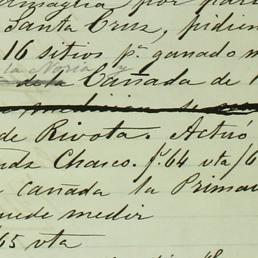 Santa Cruz, pidien
16 sitios pª. ganado m
la Noria y
de la Cañada de
de Rivota. Actuó
nds Chasco. f.64 vta/6
cañada la Prima
uede medir
65 vta